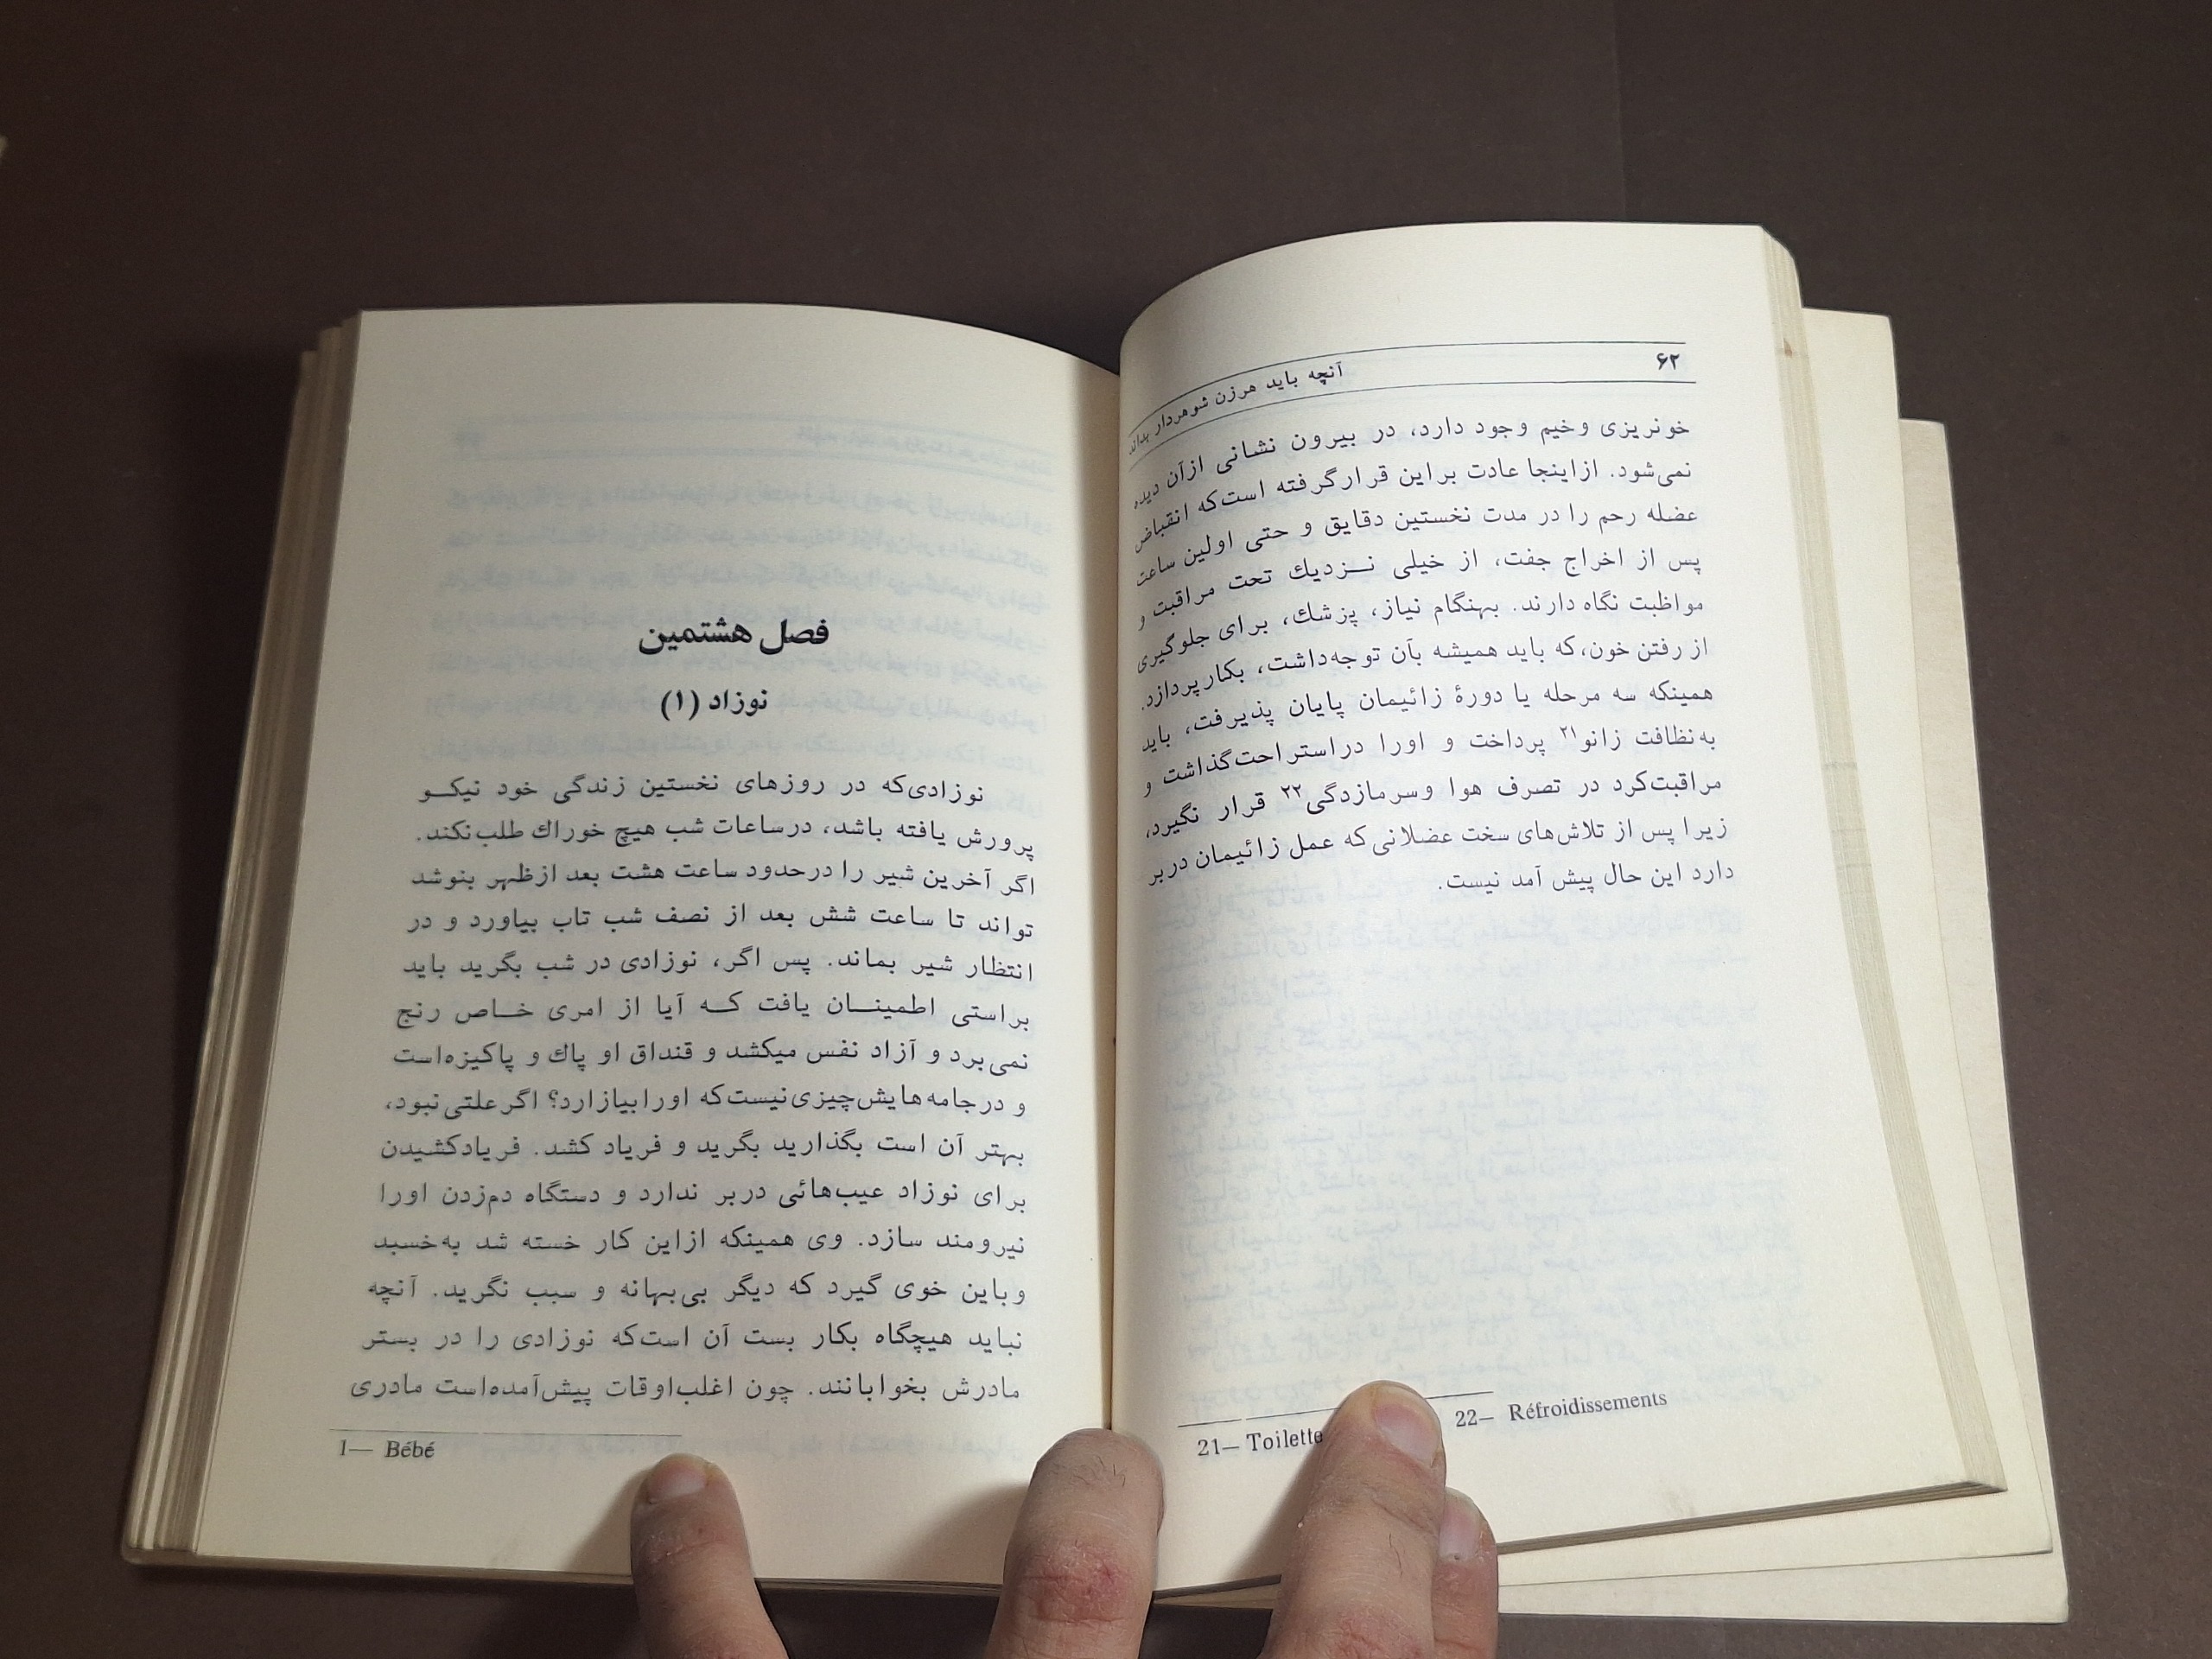 ۶۲
آنچه باید هرزن شوهردار بداند
خونریزی وخیم وجود دارد، در بیرون نشانی ازآن دیده
نمی‌شود. ازاینجا عادت براین قرارگرفته است‌که انقباض
عضله رحم را در مدت نخستین دقایق و حتی اولین ساعت
پس از اخراج جفت، از خیلی نـزدیك تحت مراقبت و
مواظبت نگاه دارند. بهنگام نیاز، پزشك، برای جلوگیری
از رفتن خون،که باید همیشه بآن توجه‌داشت، بکارپردازد.
همینکه سه مرحله یا دورهٔ زائیمان پایان پذیرفت، باید
به‌نظافت زانو۲۱ پرداخت و اورا دراستراحت‌گذاشت و
مراقبت‌کرد در تصرف هوا وسرمازدگی۲۲ قرار نگیرد،
زیرا پس از تلاش‌های سخت عضلانی‌که عمل زائیمان دربر
دارد این حال پیش آمد نیست.
21— Toilette
22— Réfroidissements
فصل هشتمین
نوزاد (۱)
نوزادی‌که در روزهای نخستین زندگی خود نیکـو
پرورش یافته باشد، درساعات شب هیچ خوراك طلب‌نکند.
اگر آخرین شیر را درحدود ساعت هشت بعد ازظهر بنوشد
تواند تا ساعت شش بعد از نصف شب تاب بیاورد و در
انتظار شیر بماند. پس اگر، نوزادی در شب بگرید باید
براستی اطمینـان یافت کـه آیا از امری خـاص رنج
نمی‌برد و آزاد نفس میکشد و قنداق او پاك و پاکیزه‌است
و درجامه‌هایش‌چیزی‌نیست‌که اورابیازارد؟ اگرعلتی‌نبود،
بهتر آن است بگذارید بگرید و فریاد کشد. فریادکشیدن
برای نوزاد عیب‌هائی دربر ندارد و دستگاه دم‌زدن اورا
نیرومند سازد. وی همینکه ازاین کار خسته شد به‌خسبد
وباین خوی گیرد که دیگر بی‌بهانه و سبب نگرید. آنچه
نباید هیچگاه بکار بست آن است‌که نوزادی را در بستر
مادرش بخوابانند. چون اغلب‌اوقات پیش‌آمده‌است مادری
1— Bébé